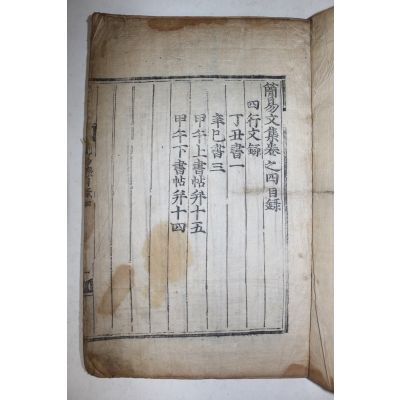 簡易文集卷之四目錄
四行文錄
丁丑書一
辛巳書三
甲午上書帖幷十五
甲午下書帖幷十四